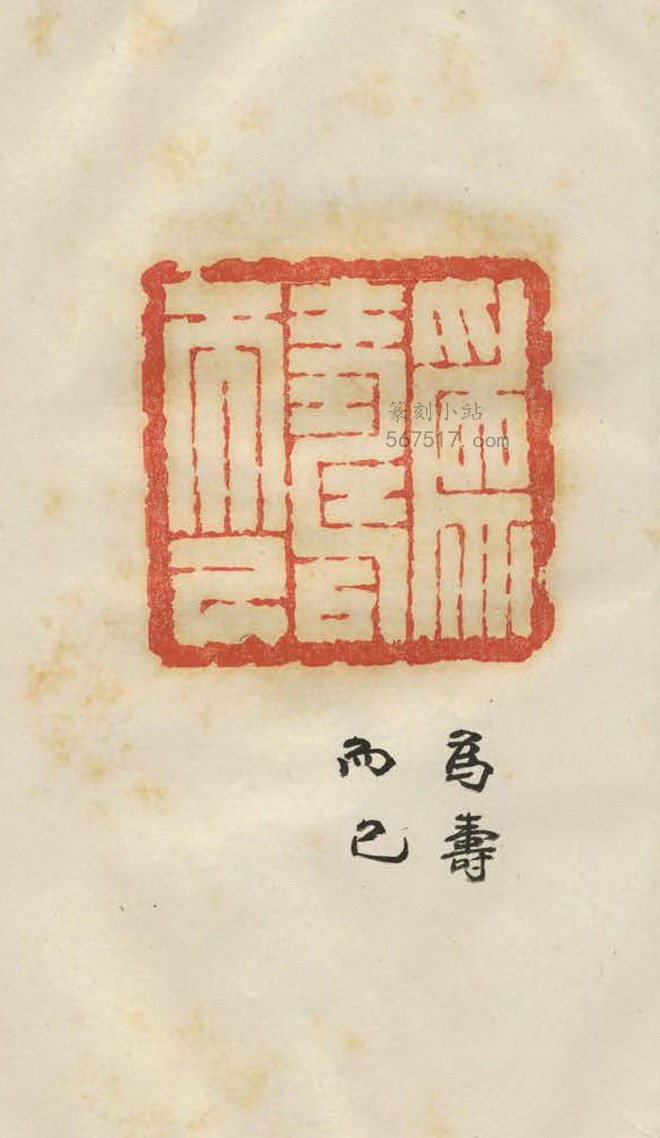 為壽
而已
篆刻小站
567517.com
為壽
而已